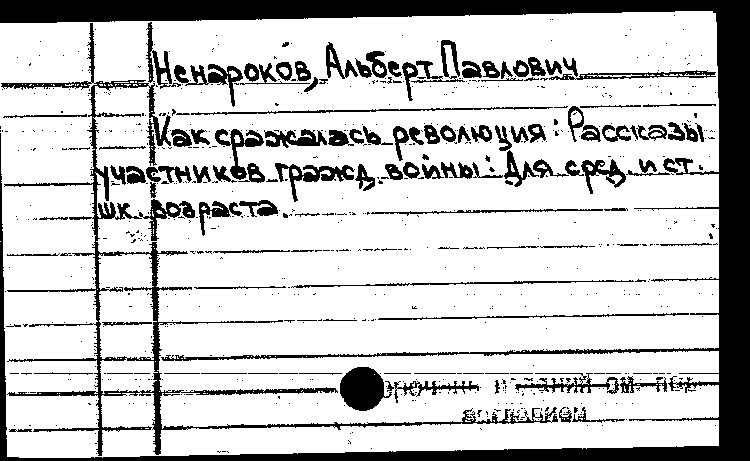 Ненароков, Альберт Павлович
Как сражалась революция : Рассказы
участников гражд. войны : Для сред. и ст.
шк. возраста.
изданий см. под
заглавием